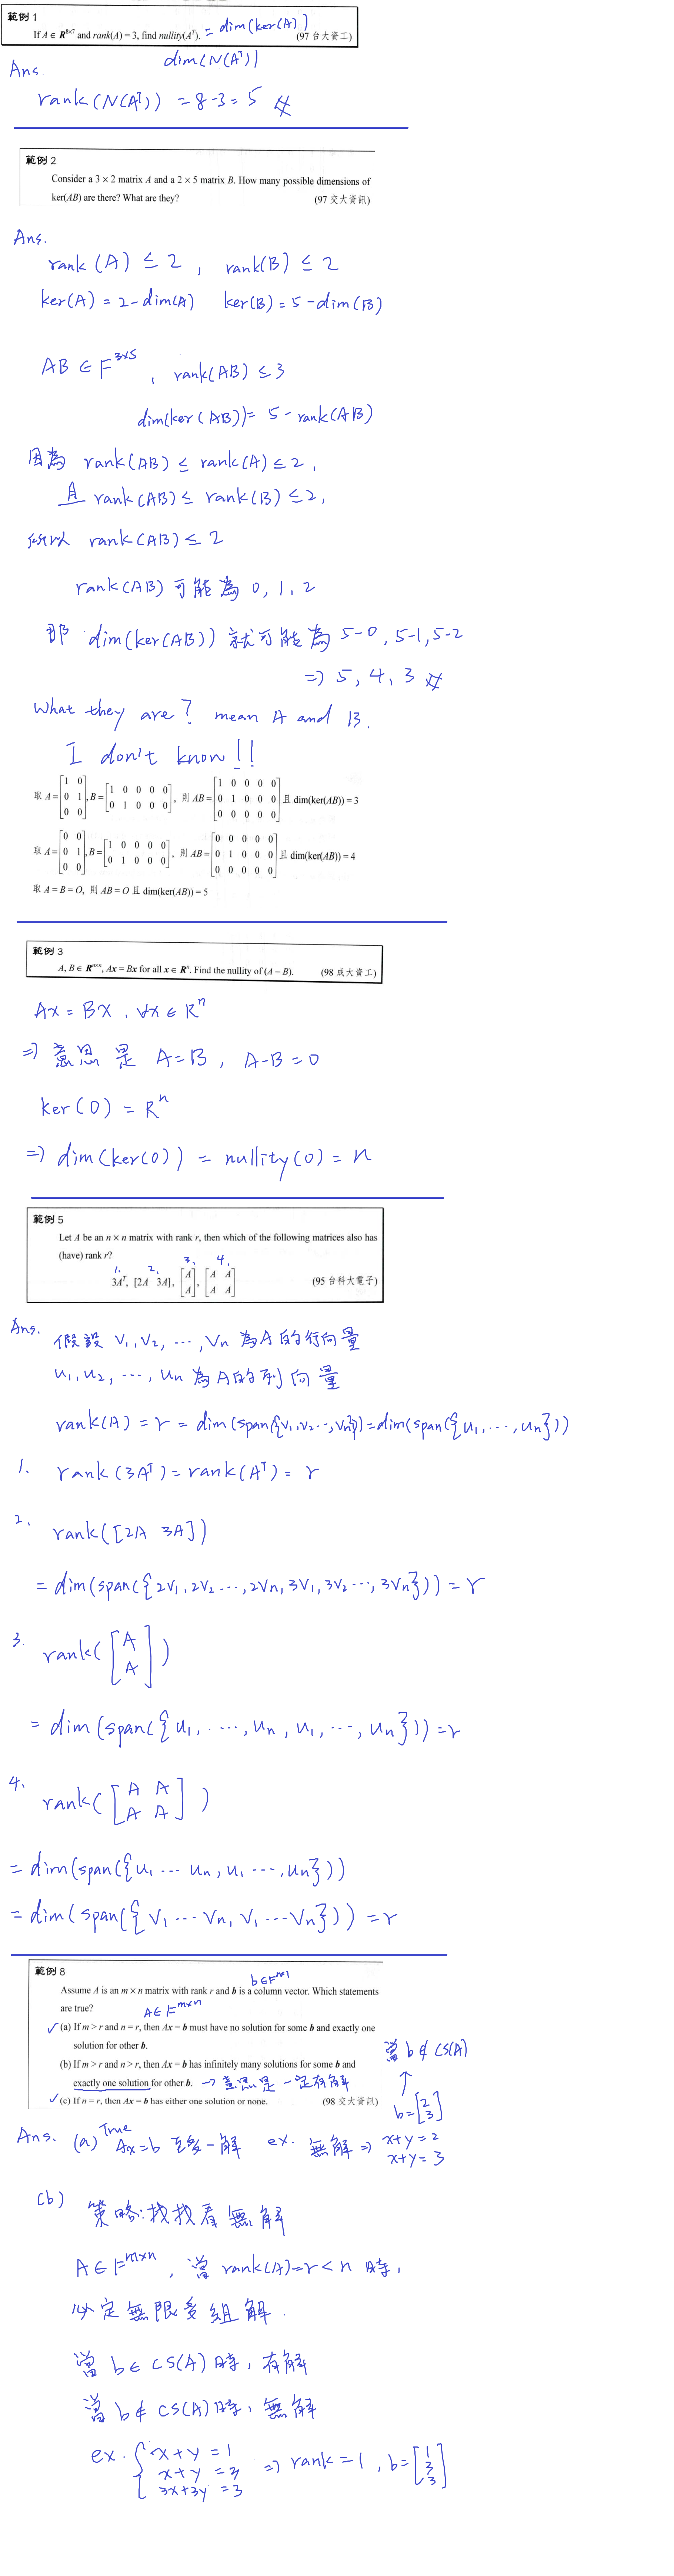 範例 1
If A ∈ R^{8×7} and rank(A) = 3, find nullity(A^T). = dim(ker(A))
(97 台大資工)
dim(N(A^T))
Ans.
rank(N(A^T)) = 8-3 = 5 #
範例 2
Consider a 3 × 2 matrix A and a 2 × 5 matrix B. How many possible dimensions of
ker(AB) are there? What are they? (97 交大資訊)
Ans.
rank(A) ≤ 2, rank(B) ≤ 2
ker(A) = 2-dim(A) ker(B) = 5-dim(B)
AB ∈ F^{3×5}, rank(AB) ≤ 3
dim(ker(AB)) = 5-rank(AB)
因為 rank(AB) ≤ rank(A) ≤ 2,
且 rank(AB) ≤ rank(B) ≤ 2,
所以 rank(AB) ≤ 2
rank(AB) 可能為 0, 1, 2
那 dim(ker(AB)) 就可能為 5-0, 5-1, 5-2
=> 5, 4, 3 #
What they are? mean A and B.
I don't know!!
取 A = [1 0; 0 1; 0 0], B = [1 0 0 0 0; 0 1 0 0 0], 則 AB = [1 0 0 0 0; 0 1 0 0 0; 0 0 0 0 0] 且 dim(ker(AB)) = 3
取 A = [0 0; 0 1; 0 0], B = [1 0 0 0 0; 0 1 0 0 0], 則 AB = [0 0 0 0 0; 0 1 0 0 0; 0 0 0 0 0] 且 dim(ker(AB)) = 4
取 A = B = O, 則 AB = O 且 dim(ker(AB)) = 5
範例 3
A, B ∈ R^{n×n}, Ax = Bx for all x ∈ R^n. Find the nullity of (A − B). (98 成大資工)
Ax = Bx, ∀x ∈ R^n
=> 意思是 A=B, A-B=0
ker(0) = R^n
=> dim(ker(0)) = nullity(0) = n
範例 5
Let A be an n × n matrix with rank r, then which of the following matrices also has
(have) rank r?
1. 2. 3. 4.
3A^T, [2A 3A], [A; A], [A A; A A] (95 台科大電子)
Ans. 假設 v1, v2, ..., vn 為A的行向量
u1, u2, ..., un 為A的列向量
rank(A) = r = dim(span({v1, v2..., vn})) = dim(span({u1, ..., un}))
1. rank(3A^T) = rank(A^T) = r
2. rank([2A 3A])
= dim(span({2v1, 2v2..., 2vn, 3v1, 3v2..., 3vn})) = r
3. rank([A; A])
= dim(span({u1, ..., un, u1, ..., un})) = r
4. rank([A A; A A])
= dim(span({u1 ... un, u1 ..., un}))
= dim(span({v1 ... vn, v1 ... vn})) = r
範例 8
b∈F^{m×1}
Assume A is an m × n matrix with rank r and b is a column vector. Which statements
are true? A∈F^{m×n}
✓ (a) If m > r and n = r, then Ax = b must have no solution for some b and exactly one
solution for other b.
(b) If m > r and n > r, then Ax = b has infinitely many solutions for some b and
exactly one solution for other b. → 意思是一定有解
✓ (c) If n = r, then Ax = b has either one solution or none. (98 交大資訊)
當 b ∉ CS(A)
↑
b = [2; 3]
Ans. (a) True
Ax=b 至多一解 ex. 無解 => x+y = 2
x+y = 3
(b) 策略: 找找看無解
A ∈ F^{m×n}, 當 rank(A)=r < n 時,
必定無限多組解.
當 b ∈ CS(A) 時, 有解
當 b ∉ CS(A) 時, 無解
ex. { x+y = 1
x+y = 3 => rank = 1, b = [1; 3; 3]
3x+3y = 3